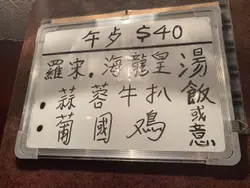 午歺 $40
羅宋.海龍皇湯
• 蒜蓉牛扒
• 葡國鳮
飯或意